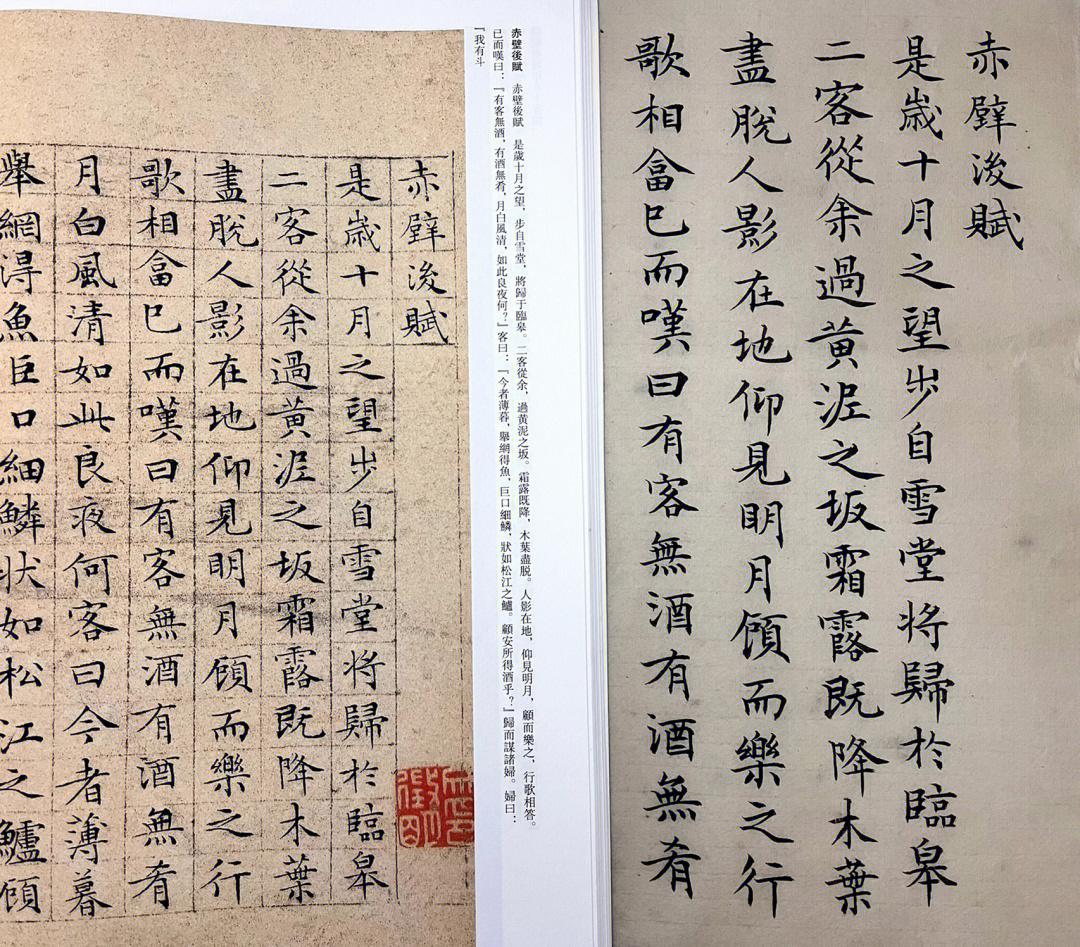 赤壁後賦
是歲十月之望步自雪堂將歸於臨皋
二客從余過黃泥之坂霜露既降木葉
盡脫人影在地仰見明月顧而樂之行
歌相畣已而嘆曰有客無酒有酒無肴
赤壁後賦　赤壁後賦　是歲十月之望，步自雪堂，將歸于臨皋。二客從余，過黃泥之坂。霜露既降，木葉盡脫。人影在地，仰見明月，顧而樂之，行歌相答。
已而嘆曰：『有客無酒，有酒無肴，月白風清，如此良夜何？』客曰：『今者薄暮，舉網得魚，巨口細鱗，狀如松江之鱸。顧安所得酒乎？』歸而謀諸婦。婦曰：
『我有斗
赤壁後賦
是歲十月之望步自雪堂將歸於臨皋
二客從余過黃泥之坂霜露既降木葉
盡脫人影在地仰見明月顧而樂之行
歌相畣已而嘆曰有客無酒有酒無肴
月白風清如此良夜何客曰今者薄暮
舉網得魚巨口細鱗狀如松江之鱸顧